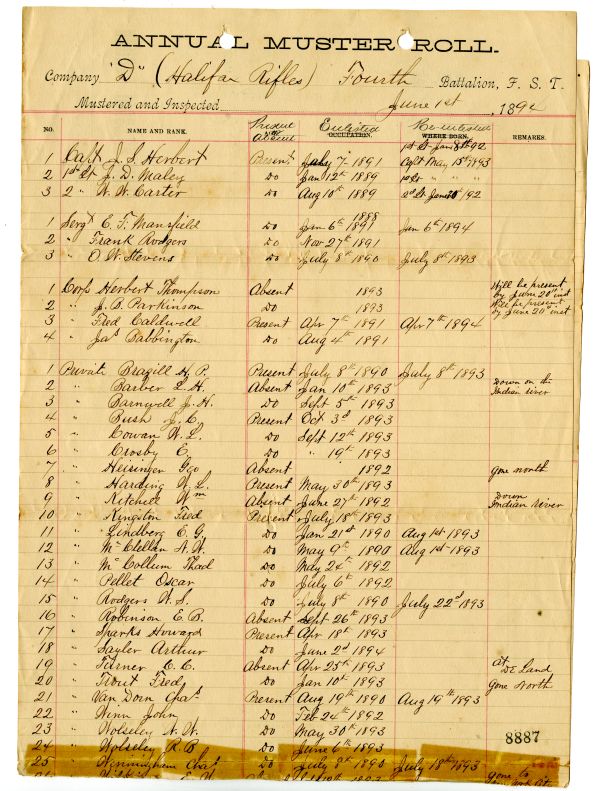 ANNUAL MUSTER ROLL.
Company "D" (Halifax Rifles) Fourth Battalion, F. S. T.
Mustered and Inspected June 1st, 1894
NO. NAME AND RANK. Present or Absent Enlisted OCCUPATION. Re-enlisted WHERE BORN. REMARKS.
1st Lt Jan 8th 92
1 Capt J. S. Herbert Present July 7- 1891 Capt May 15th 1893
2 1st Lt J. D. Maley Do Jan 12th 1889 1st Lt " " "
3 2 " W. W. Carter Do Aug 10th 1889 2d Lt June 20 /92
1888
1 Sergt C. F. Mansfield Do Jan 6th 1891 Jan 6th 1894
2 " Frank Rodgers Do Nov 27th 1891
3 " O. W. Stevens Do July 8th 1890 July 8th 1893
1 Corp Herbert Thompson Absent 1893 Will be present by June 20th inst
2 " J. B. Parkinson Do 1893 Will be present by June 20th inst
3 " Fred Caldwell Present Apr 7th 1891 Apr 7th 1894
4 " Jas Babbington Do Aug 4th 1891
1 Private Brazill H. P. Present July 8th 1890 July 8th 1893
2 " Barber L. H. Absent Jan 10th 1893 Down on the Indian river
3 " Barnwell J. H. Do Sept 5th 1893
4 " Bush J. C. Present Oct 3d 1893
5 " Cowan W. L. Do Sept 12th 1893
6 " Crosby E. Do " 19th 1893
7 " Heisinger Geo Absent 1892 gone north
8 " Harding W. L. Present May 30th 1893
9 " Kitchell Wm Absent June 27th 1892 Down Indian river
10 " Kingston Fred Present July 18th 1893
11 " Lindberg E. G. Do Jan 21st 1890 Aug 1st 1893
12 " McClellan A. W. Do May 9th 1890 Aug 1st 1893
13 " McCollum Thad Do May 24th 1892
14 " Pellet Oscar Do July 6th 1892
15 " Rodgers W. S. Do July 8th 1890 July 22d 1893
16 " Robinson E. B. Absent Sept 26th 1893
17 " Sparks Howard Present Apr 18th 1893
18 " Sayler Arthur Do June 2d 1894
19 " Turner C. C. Absent Apr 25th 1893 at De Land
20 " Trout Fred Do Jan 10th 1893 gone North
21 " Van Dorn Chas Present Aug 19th 1890 Aug 19th 1893
22 " Winn John Do Feb 24th 1892
23 " Wolseley N. W. Do May 30th 1893
8887
24 " Wolseley R. B Do June 6th 1893
25 " Winningham Chas Do July 8th 1890 July 18th 1893 gone to